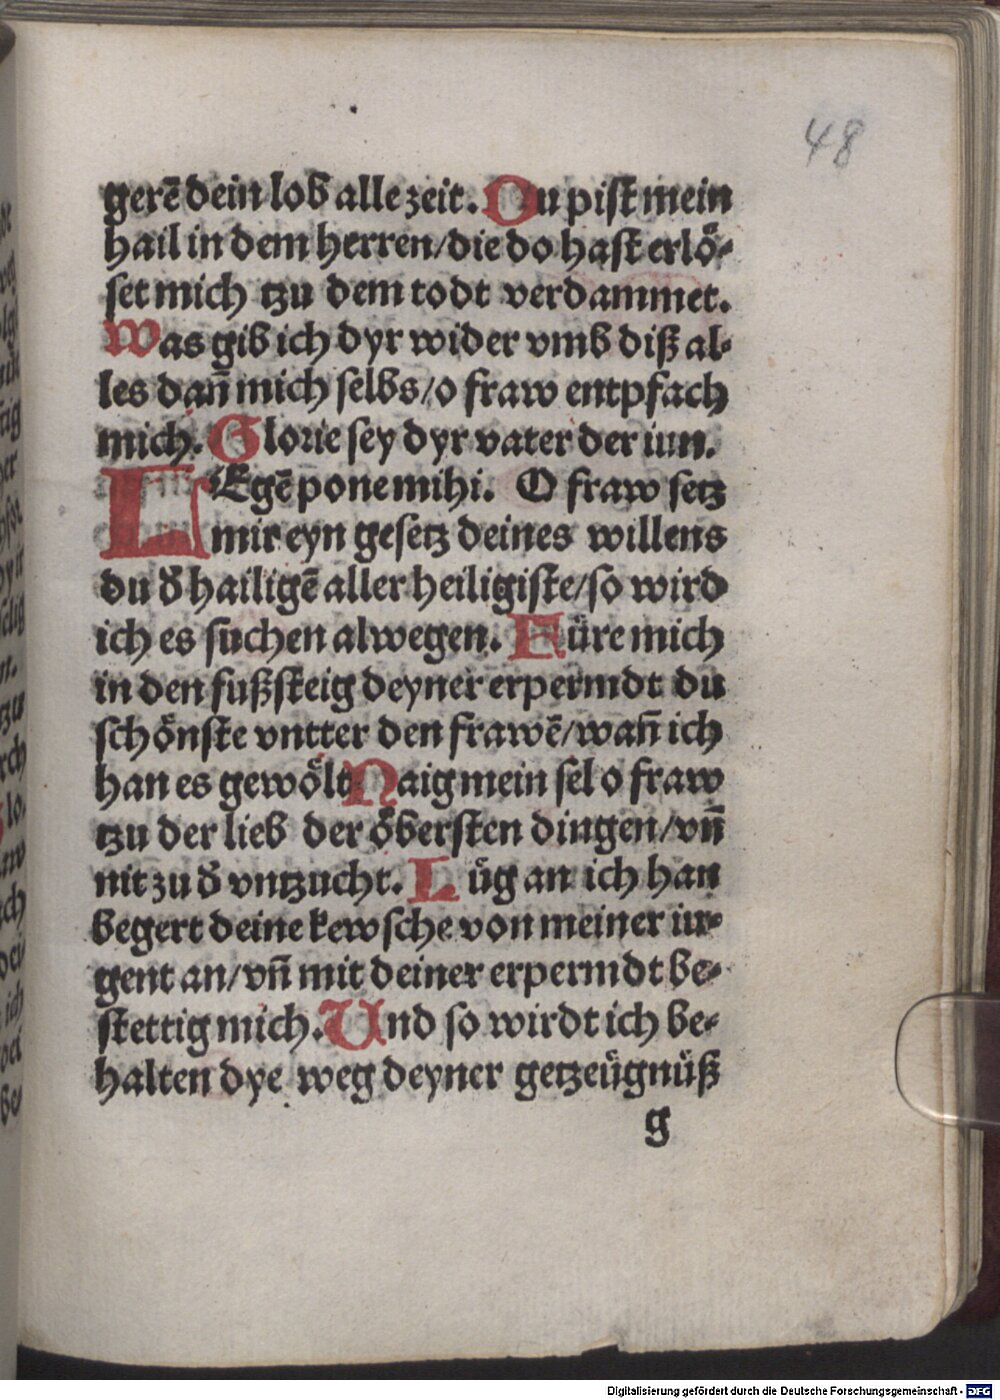 48
gerē dein lob alle zeit. Du pist mein
hail in dem herren/die do hast erlö-
set mich tzu dem todt verdammet.
Was gib ich dyr wider vmb diß al-
les dañ mich selbs/o fraw entpfach
mich. Glorie sey dyr vater der iun.
LEgē pone mihi. O fraw setz
mir eyn gesetz deines willens
du d̄ hailigē aller heiligiste/so wird
ich es suchen alwegen. Füre mich
in den fußsteig deyner erpermdt du
schönste vntter den frawē/wañ ich
han es gewölt Naig mein sel o fraw
tzu der lieb der öbersten dingen/vñ
nit zu d̄ vntzucht. Lüg an ich han
begert deine kewsche von meiner iu-
gent an/vñ mit deiner erpermdt be-
stettig mich. Und so wirdt ich be-
halten dye weg deyner getzeügnüß
g
Digitalisierung gefördert durch die Deutsche Forschungsgemeinschaft - DFG